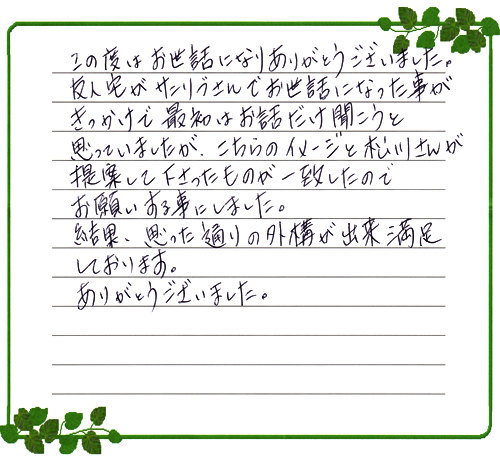 この度はお世話になりありがとうございました。
友人宅がサンリブさんでお世話になった事が
きっかけで最初はお話だけ聞こうと
思っていましたが、こちらのイメージと松川さんが
提案して下さったものが一致したので
お願いする事にしました。
結果、思った通りの外構が出来満足
しております。
ありがとうございました。